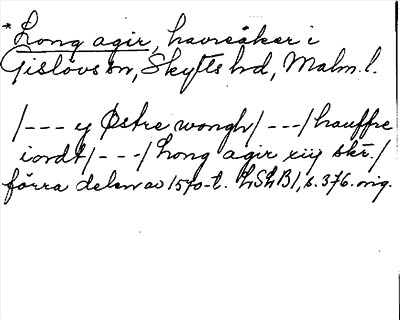 * Long agir, havreåker i
Gislövs sn, Skytts hd, Malm. l.
/--- y Østre wongh/---/hauffre
iordt/---/Long agir xiij skr./
förra delen av 1570-t. LSLB1, s. 376. orig.